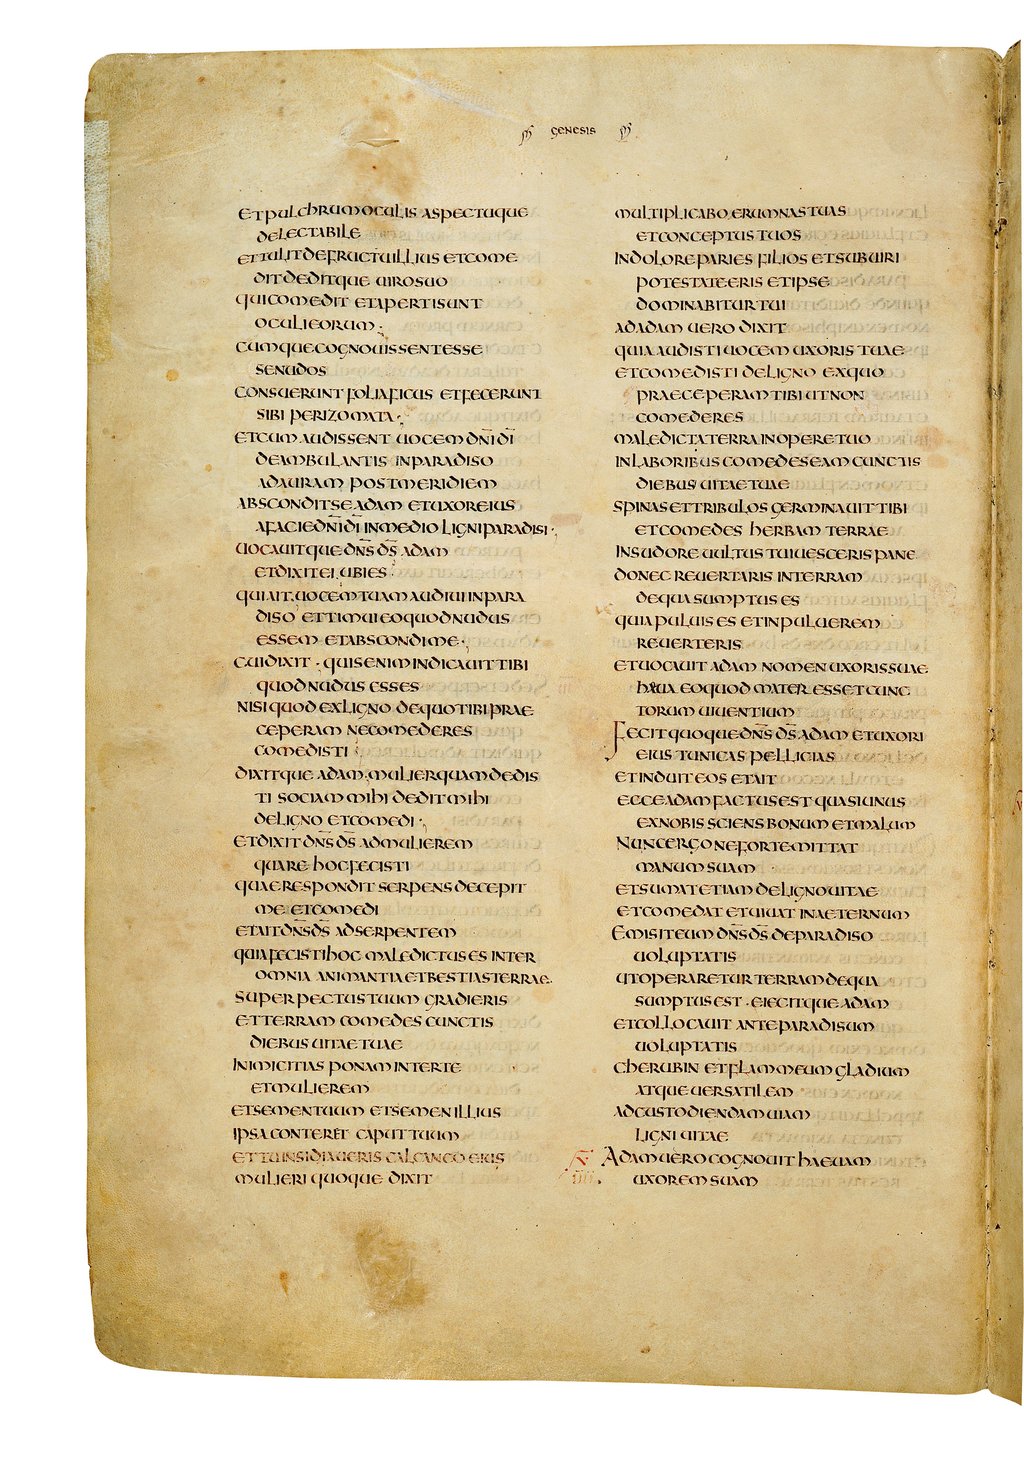 GENESIS
ET PULCHRUM OCULIS ASPECTUQUE
DELECTABILE
ET TULIT DE FRUCTU ILLIUS ET COME
DIT DEDITQUE UIRO SUO
QUI COMEDIT ET APERTI SUNT
OCULI EORUM
CUMQUE COGNOUISSENT ESSE
SE NUDOS
CONSUERUNT FOLIA FICUS ET FECERUNT
SIBI PERIZOMATA
ET CUM AUDISSENT UOCEM DN̄I DĪ
DEAMBULANTIS IN PARADISO
AD AURAM POST MERIDIEM
ABSCONDIT SE ADAM ET UXOR EIUS
A FACIE DN̄I DĪ IN MEDIO LIGNI PARADISI
UOCAUITQUE DN̄S D̄S ADAM
ET DIXIT EI UBI ES
QUI AIT UOCEM TUAM AUDIUI IN PARA
DISO ET TIMUI EO QUOD NUDUS
ESSEM ET ABSCONDI ME
CUI DIXIT · QUIS ENIM INDICAUIT TIBI
QUOD NUDUS ESSES
NISI QUOD EX LIGNO DE QUO TIBI PRAE
CEPERAM NE COMEDERES
COMEDISTI
DIXITQUE ADAM MULIER QUAM DEDIS
TI SOCIAM MIHI DEDIT MIHI
DE LIGNO ET COMEDI
ET DIXIT DN̄S D̄S AD MULIEREM
QUARE HOC FECISTI
QUAE RESPONDIT SERPENS DECEPIT
ME ET COMEDI
ET AIT DN̄S D̄S AD SERPENTEM
QUIA FECISTI HOC MALEDICTUS ES INTER
OMNIA ANIMANTIA ET BESTIAS TERRAE
SUPER PECTUS TUUM GRADIERIS
ET TERRAM COMEDES CUNCTIS
DIEBUS UITAE TUAE
INIMICITIAS PONAM INTER TE
ET MULIEREM
ET SEMEN TUUM ET SEMEN ILLIUS
IPSA CONTERET CAPUT TUUM
ET TU INSIDIAUERIS CALCANEO EIUS
MULIERI QUOQUE DIXIT
MULTIPLICABO ERUMNAS TUAS
ET CONCEPTUS TUOS
IN DOLORE PARIES FILIOS ET SUB UIRI
POTESTATE ERIS ET IPSE
DOMINABITUR TUI
AD ADAM UERO DIXIT
QUIA AUDISTI UOCEM UXORIS TUAE
ET COMEDISTI DE LIGNO EX QUO
PRAECEPERAM TIBI UT NON
COMEDERES
MALEDICTA TERRA IN OPERE TUO
IN LABORIBUS COMEDES EAM CUNCTIS
DIEBUS UITAE TUAE
SPINAS ET TRIBULOS GERMINAUIT TIBI
ET COMEDES HERBAM TERRAE
IN SUDORE UULTUS TUI UESCERIS PANE
DONEC REUERTARIS IN TERRAM
DE QUA SUMPTUS ES
QUIA PULUIS ES ET IN PULUEREM
REUERTERIS
ET UOCAUIT ADAM NOMEN UXORIS SUAE
HAUA EO QUOD MATER ESSET CUNC
TORUM UIUENTIUM
FECIT QUOQUE DN̄S D̄S ADAM ET UXORI
EIUS TUNICAS PELLICIAS
ET INDUIT EOS ET AIT
ECCE ADAM FACTUS EST QUASI UNUS
EX NOBIS SCIENS BONUM ET MALUM
NUNC ERGO NE FORTE MITTAT
MANUM SUAM
ET SUMAT ETIAM DE LIGNO UITAE
ET COMEDAT ET UIUAT IN AETERNUM
EMISIT EUM DN̄S D̄S DE PARADISO
UOLUPTATIS
UT OPERARETUR TERRAM DE QUA
SUMPTUS EST · EIECITQUE ADAM
ET COLLOCAUIT ANTE PARADISUM
UOLUPTATIS
CHERUBIN ET FLAMMEUM GLADIUM
ATQUE UERSATILEM
AD CUSTODIENDAM UIAM
LIGNI UITAE
ADAM UERO COGNOUIT HAEUAM
UXOREM SUAM